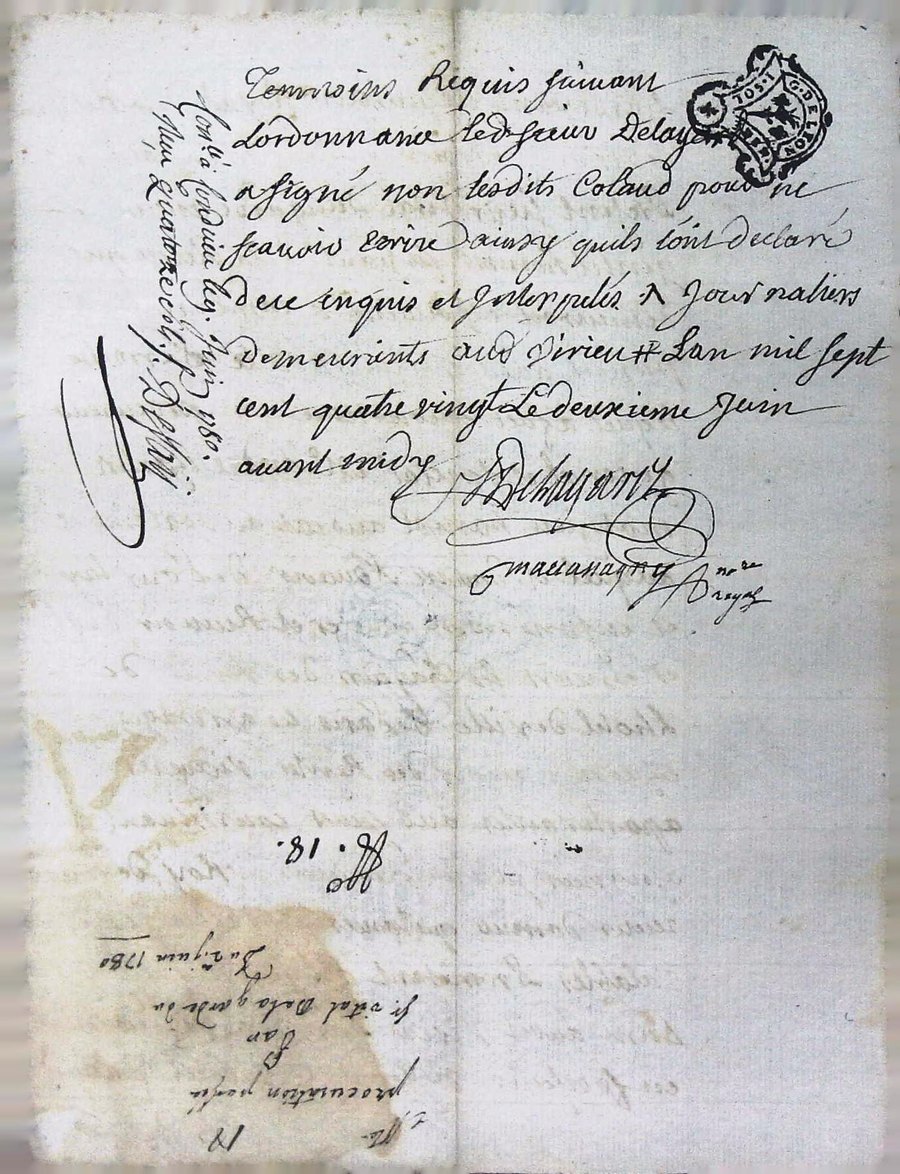 Temoins Requis suivant
Lordonnance led. sieur Delagarde
a signé non lesdits Colaud pour ne
scavoir Ecrire ainsy quils lont declaré
de ce enquis et Interpelés Journaliers
demeurants aud Virieu Lan mil sept
cent quatre vingt Le deuxieme Juin
avant midy
Delagarde
nore
royal
G. DE LYON
1. SOL
Juin 1780.
quatorze sols
№. 18.
procuration passée
Par
Sr. vital Delagarde du
Du 2. juin 1780